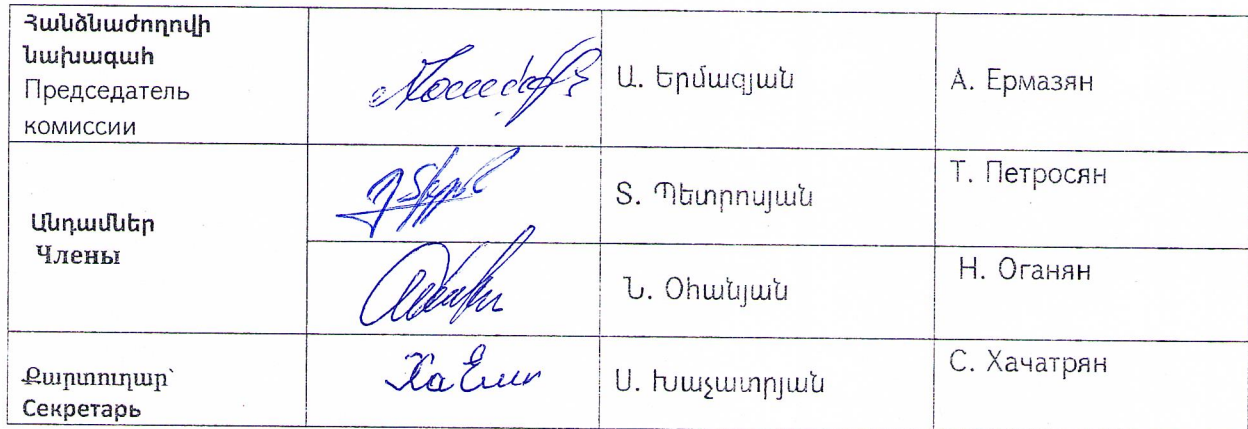 Հանձնաժողովի
նախագահ
Председатель
комиссии
Ա. Երմազյան
А. Ермазян
Անդամներ
Члены
Տ. Պետրոսյան
Т. Петросян
Ն. Օհանյան
Н. Оганян
Քարտուղար՝
Секретарь
Ս. Խաչատրյան
С. Хачатрян